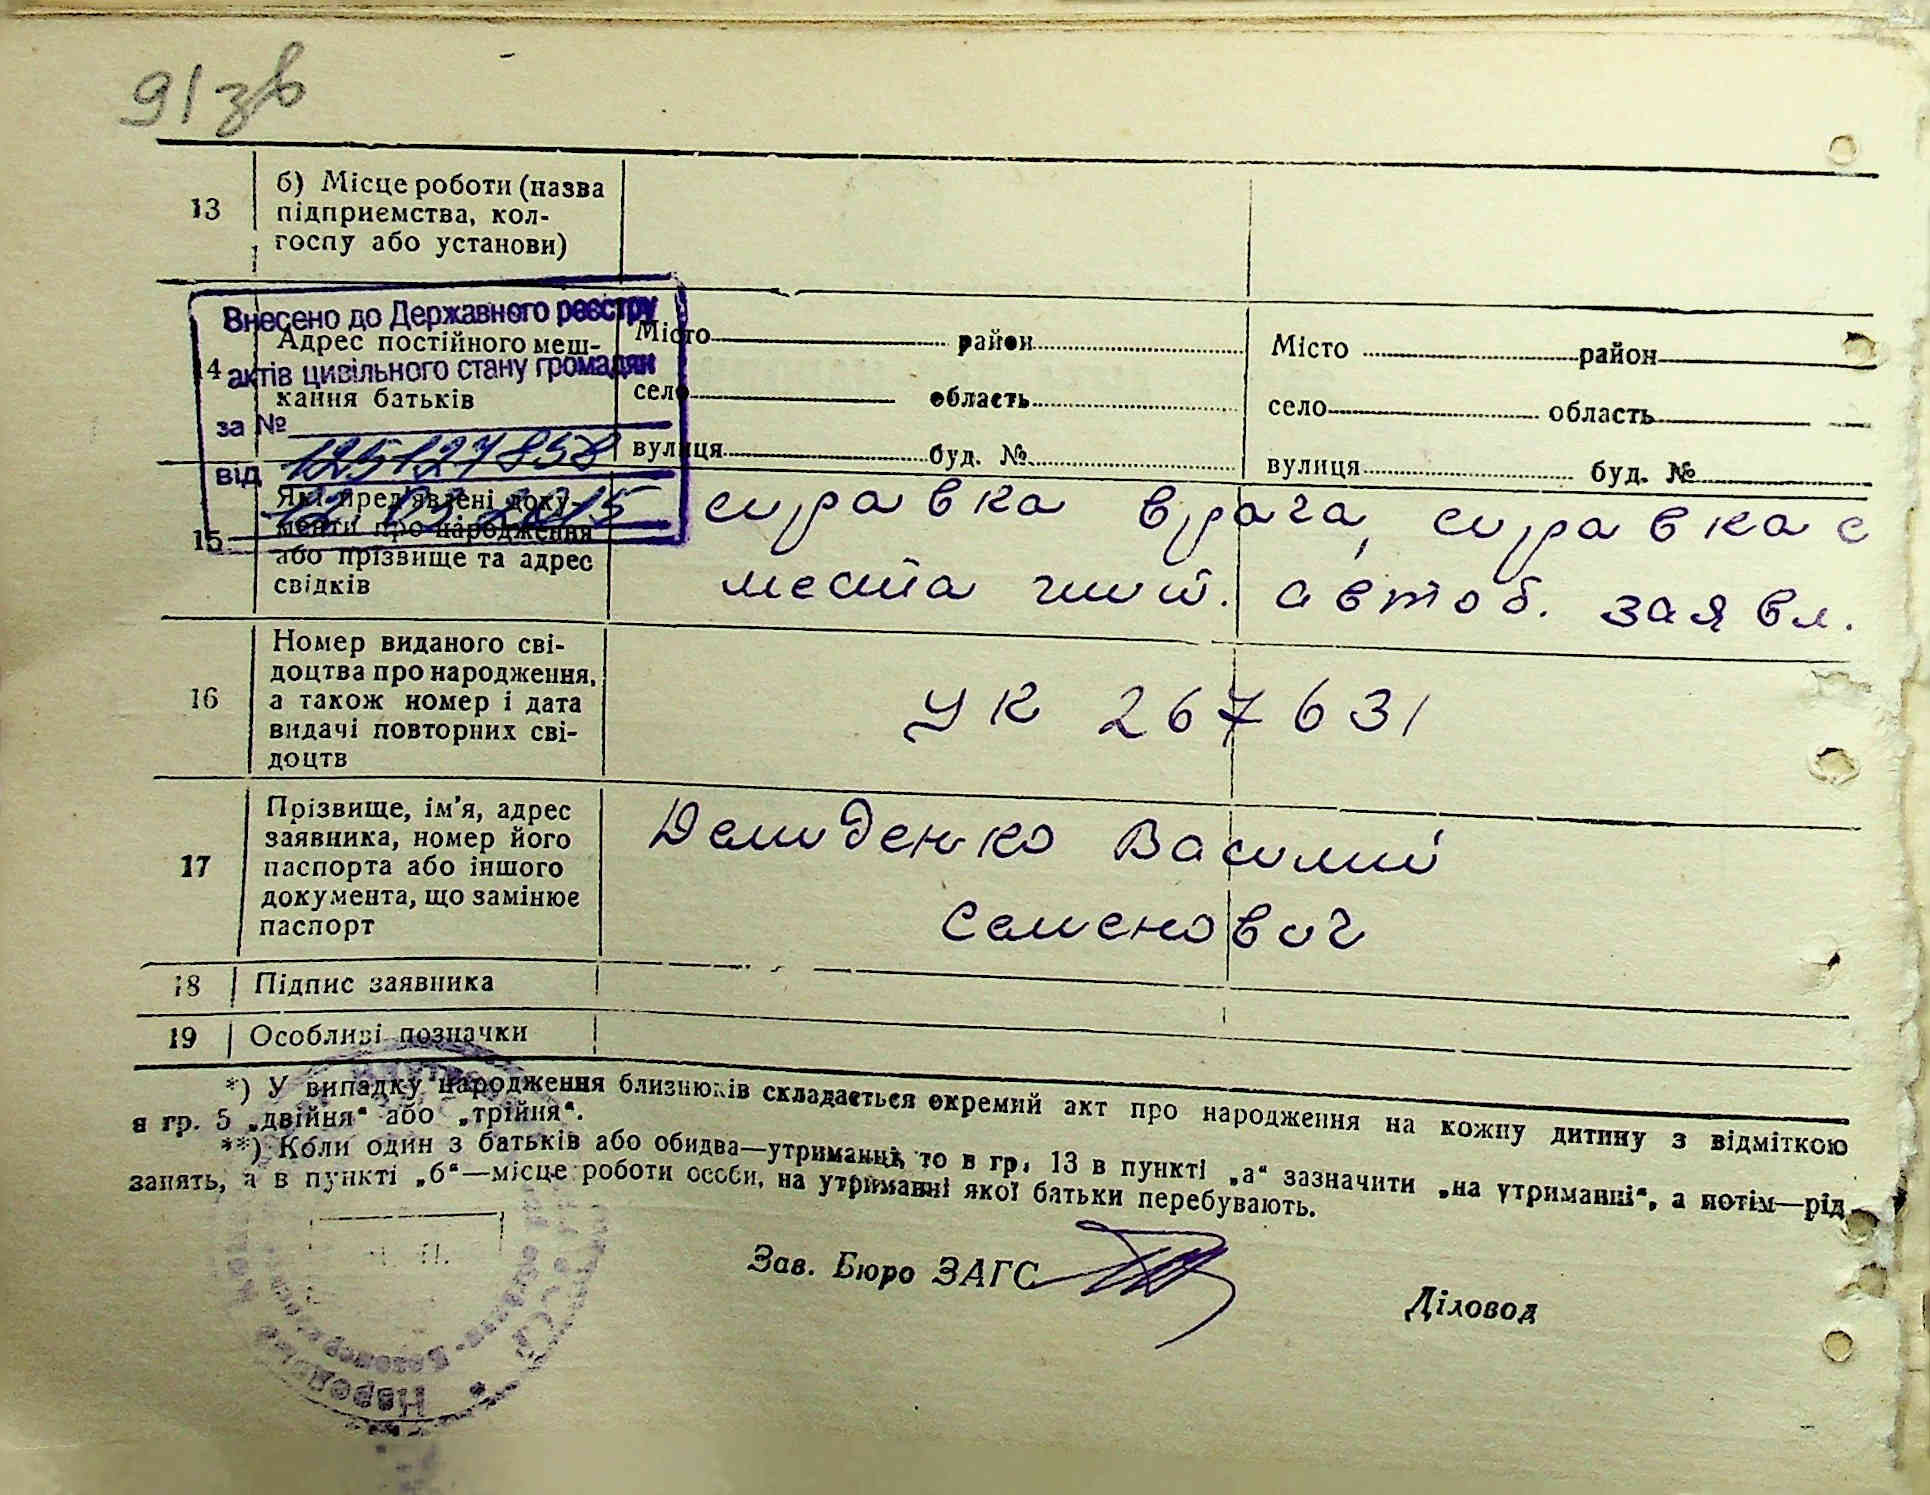 91зв
13
б) Місце роботи (назва
підприємства, кол-
госпу або установи)
Внесено до Державного реєстру
актів цивільного стану громадян
за № 125127858
від 2015
14
Адрес постійного меш-
кання батьків
Місто район
село область
вулиця буд. №
Місто район
село область
вулиця буд. №
15
Які пред'явлені доку-
менти про народження
або прізвище та адрес
свідків
справка врача, справка с
места жит. автоб. заявл.
16
Номер виданого сві-
доцтва про народження,
а також номер і дата
видачі повторних сві-
доцтв
УК 267631
17
Прізвище, ім'я, адрес
заявника, номер його
паспорта або іншого
документа, що замінює
паспорт
Демиденко Василий
Семенович
18
Підпис заявника
19
Особливі позначки
*) У випадку народження близнюків складається окремий акт про народження на кожну дитину з відміткою
в гр. 5 „двійня“ або „трійня“.
**) Коли один з батьків або обидва—утриманці, то в гр. 13 в пункті „а“ зазначити „на утриманні“, а потім—рід
занять, а в пункті „б“—місце роботи особи, на утриманні якої батьки перебувають.
Зав. Бюро ЗАГС
Діловод